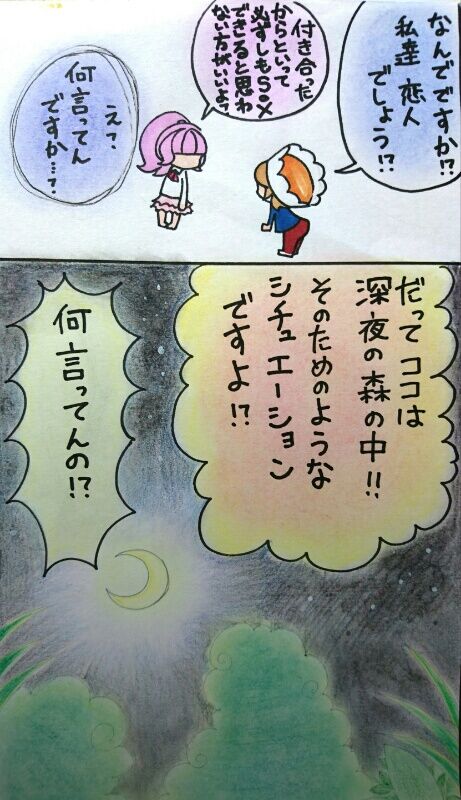 なんでですか!?
私達 恋人
でしょう!?
付き合った
からといって
必ずしもSOX
できると思わ
ない方がいいよ?
え?
何言ってん
ですか…?
だってココは
深夜の森の中!!
そのためのような
シチュエーション
ですよ!?
何言ってんの!?